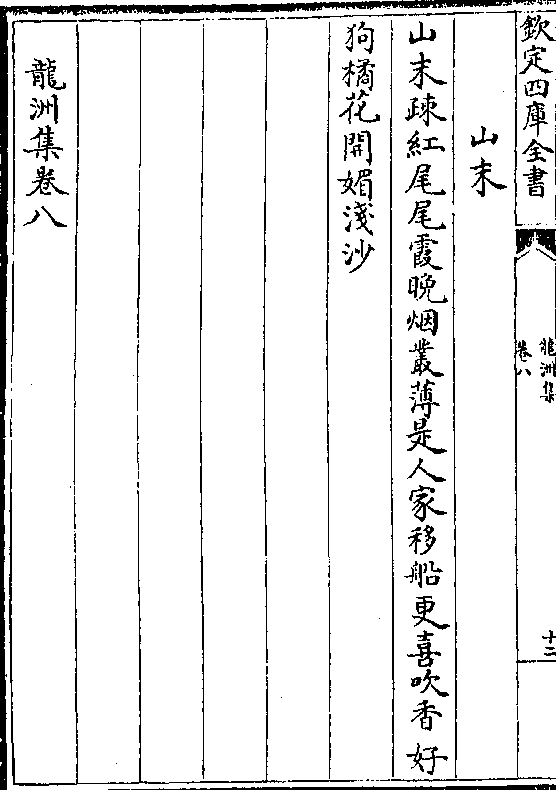 欽定四庫全書
龍洲集
卷八
十二
山末
山末疎紅尾尾霞晚烟叢薄是人家移船更喜吹香好
狗橘花開媚淺沙
龍洲集卷八